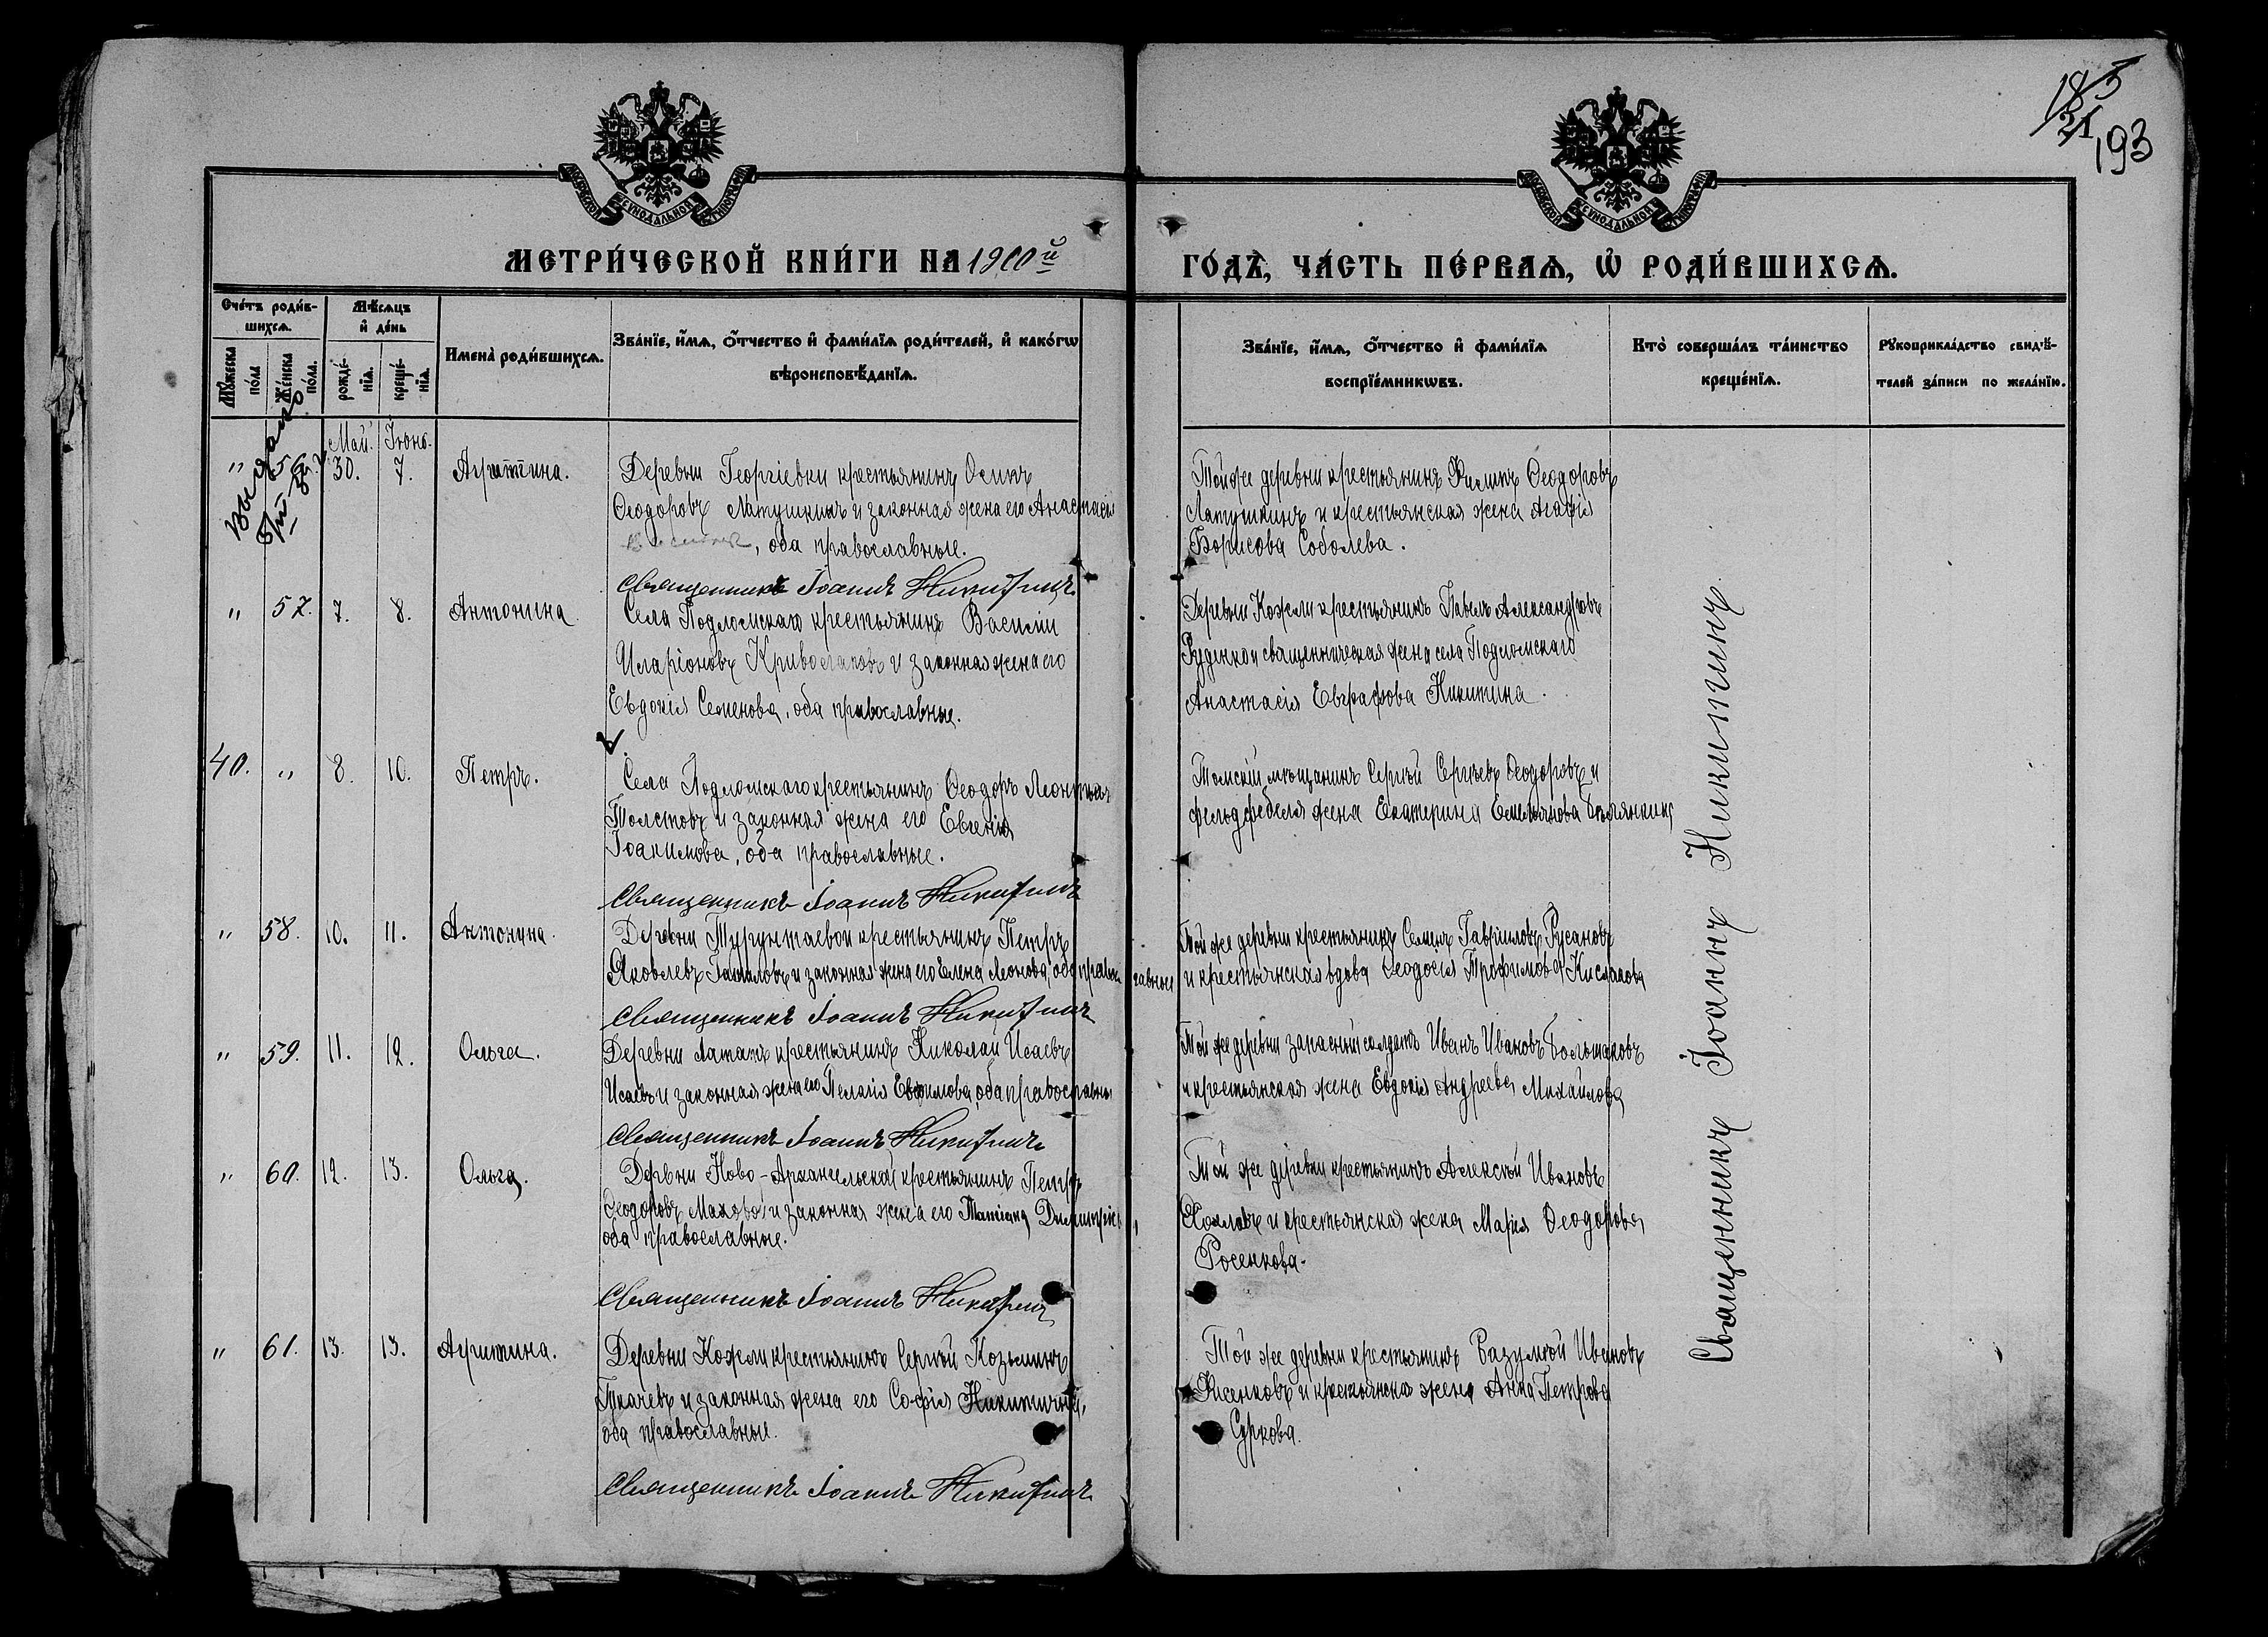 18/5
21
193
МОСКОВСКОЙ СѴНОДАЛЬНОЙ ТИПОГРАФІИ
МОСКОВСКОЙ СѴНОДАЛЬНОЙ ТИПОГРАФІИ
МЕТРИ́ЧЕСКОЙ КНИ́ГИ НА 1900й
ГО́ДЪ, ЧА́СТЬ ПЕ́РВАѦ, Ѡ҆ РОДИ́ВШИХСѦ.
Сче́тъ роди́в-
шихсѧ.
Мꙋ́жеска по́ла
Же́нска по́ла.
Мѣ́сѧцъ
и҆ де́нь
рожде́-
нїѧ.
креще́-
нїѧ.
И҆мена̀ роди́вшихсѧ.
Зва́нїе, и҆́мѧ, ѻ҆́тчество и҆ фами́лїѧ роди́телей, и҆ како́гѡ
вѣроисповѣ́данїѧ.
Зва́нїе, и҆́мѧ, ѻ҆́тчество и҆ фами́лїѧ
воспрїе́мникѡвъ.
Кто̀ соверша́лъ та́инство
креще́нїѧ.
Рꙋкоприкла́дство свидѣ́-
телей за́писи по жела́нїю.
Май. Іюнь.
" 30. 7. Агриппина.
Деревни Георгіевки крестьянинъ Осипъ
Ѳеодоровъ Латушкинъ и законная жена его Анастасія
, оба православные.
Священникъ Іоаннъ Никитинъ
Той же деревни крестьянинъ Филипъ Ѳеодоровъ
Латушкинъ и крестьянская жена Агафія
Борисова Соболева.
" 57. 7. 8. Антонина.
Села Подломскаго крестьянинъ Василій
Иларіоновъ и законная жена его
Евдокія Семенова, оба православные.
Деревни Кожли крестьянинъ Павелъ Александровъ
Руденко и священническая жена села Подломскаго
Анастасія Евграфова Никитина.
40. " 8. 10. Петръ.
Села Подломскаго крестьянинъ Ѳеодоръ Леонтьевъ
Толстовъ и законная жена его Евгенія
Іоакимова, оба православные.
Священникъ Іоаннъ Никитинъ
Томскій мѣщанинъ Сергѣй Сергѣевъ Ѳеодоровъ и
фельдфебеля жена Екатерина Емельянова
" 58. 10. 11. Антонина.
Деревни Турунтаевой крестьянинъ Петръ
Яковлевъ и законная жена его Елена Леонова, оба православные
Священникъ Іоаннъ Никитинъ
Той же деревни крестьянинъ Семенъ Гавриловъ Русановъ
и крестьянская вдова Ѳеодосія Трофимова Кислакова
" 59. 11. 12. Ольга.
Деревни Лататъ крестьянинъ Николай Исаевъ
Исаевъ и законная жена его Пелагія Евфимова, оба православны
Священникъ Іоаннъ Никитинъ
Той же деревни запасный солдатъ Иванъ Ивановъ Большаковъ
и крестьянская жена Евдокія Андреева Михайлова
" 60. 12. 13. Ольга.
Деревни Ново-Архангельской крестьянинъ Петръ
Ѳеодоровъ Маховъ и законная жена его Татіана Димитріева,
оба православные.
Священникъ Іоаннъ Никитинъ
Той же деревни крестьянинъ Алексѣй Ивановъ
и крестьянская жена Марія Ѳеодорова
Росенкова.
" 61. 13. 13. Агриппина.
Деревни Кожли крестьянинъ Сергѣй Козьминъ
Ткачевъ и законная жена его Софія Никитична,
оба православные.
Священникъ Іоаннъ Никитинъ
Той же деревни крестьянинъ Ивановъ
и крестьянска жена Анна Петрова
Суркова.
Священникъ Іоаннъ Никитинъ